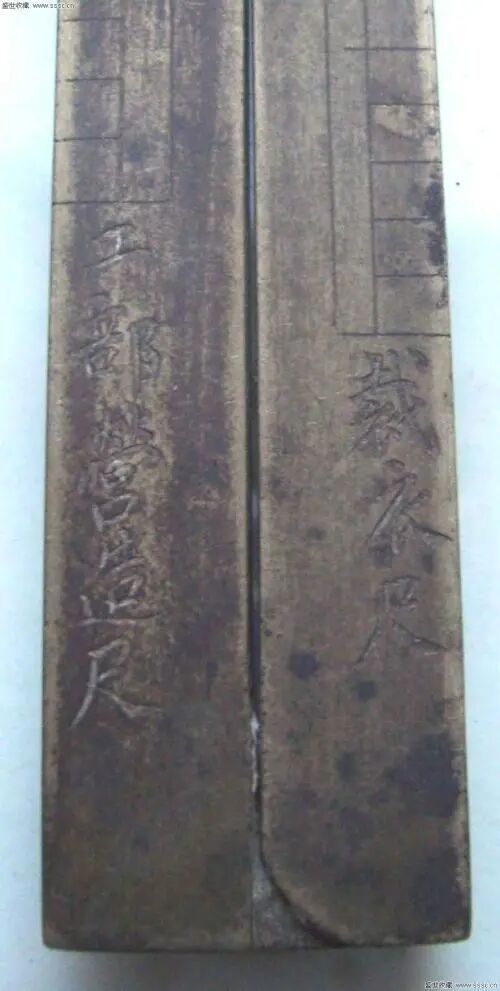 盛世收藏 www.sssc.cn
工部營造尺
裁衣尺
盛世收藏 www.sssc.cn